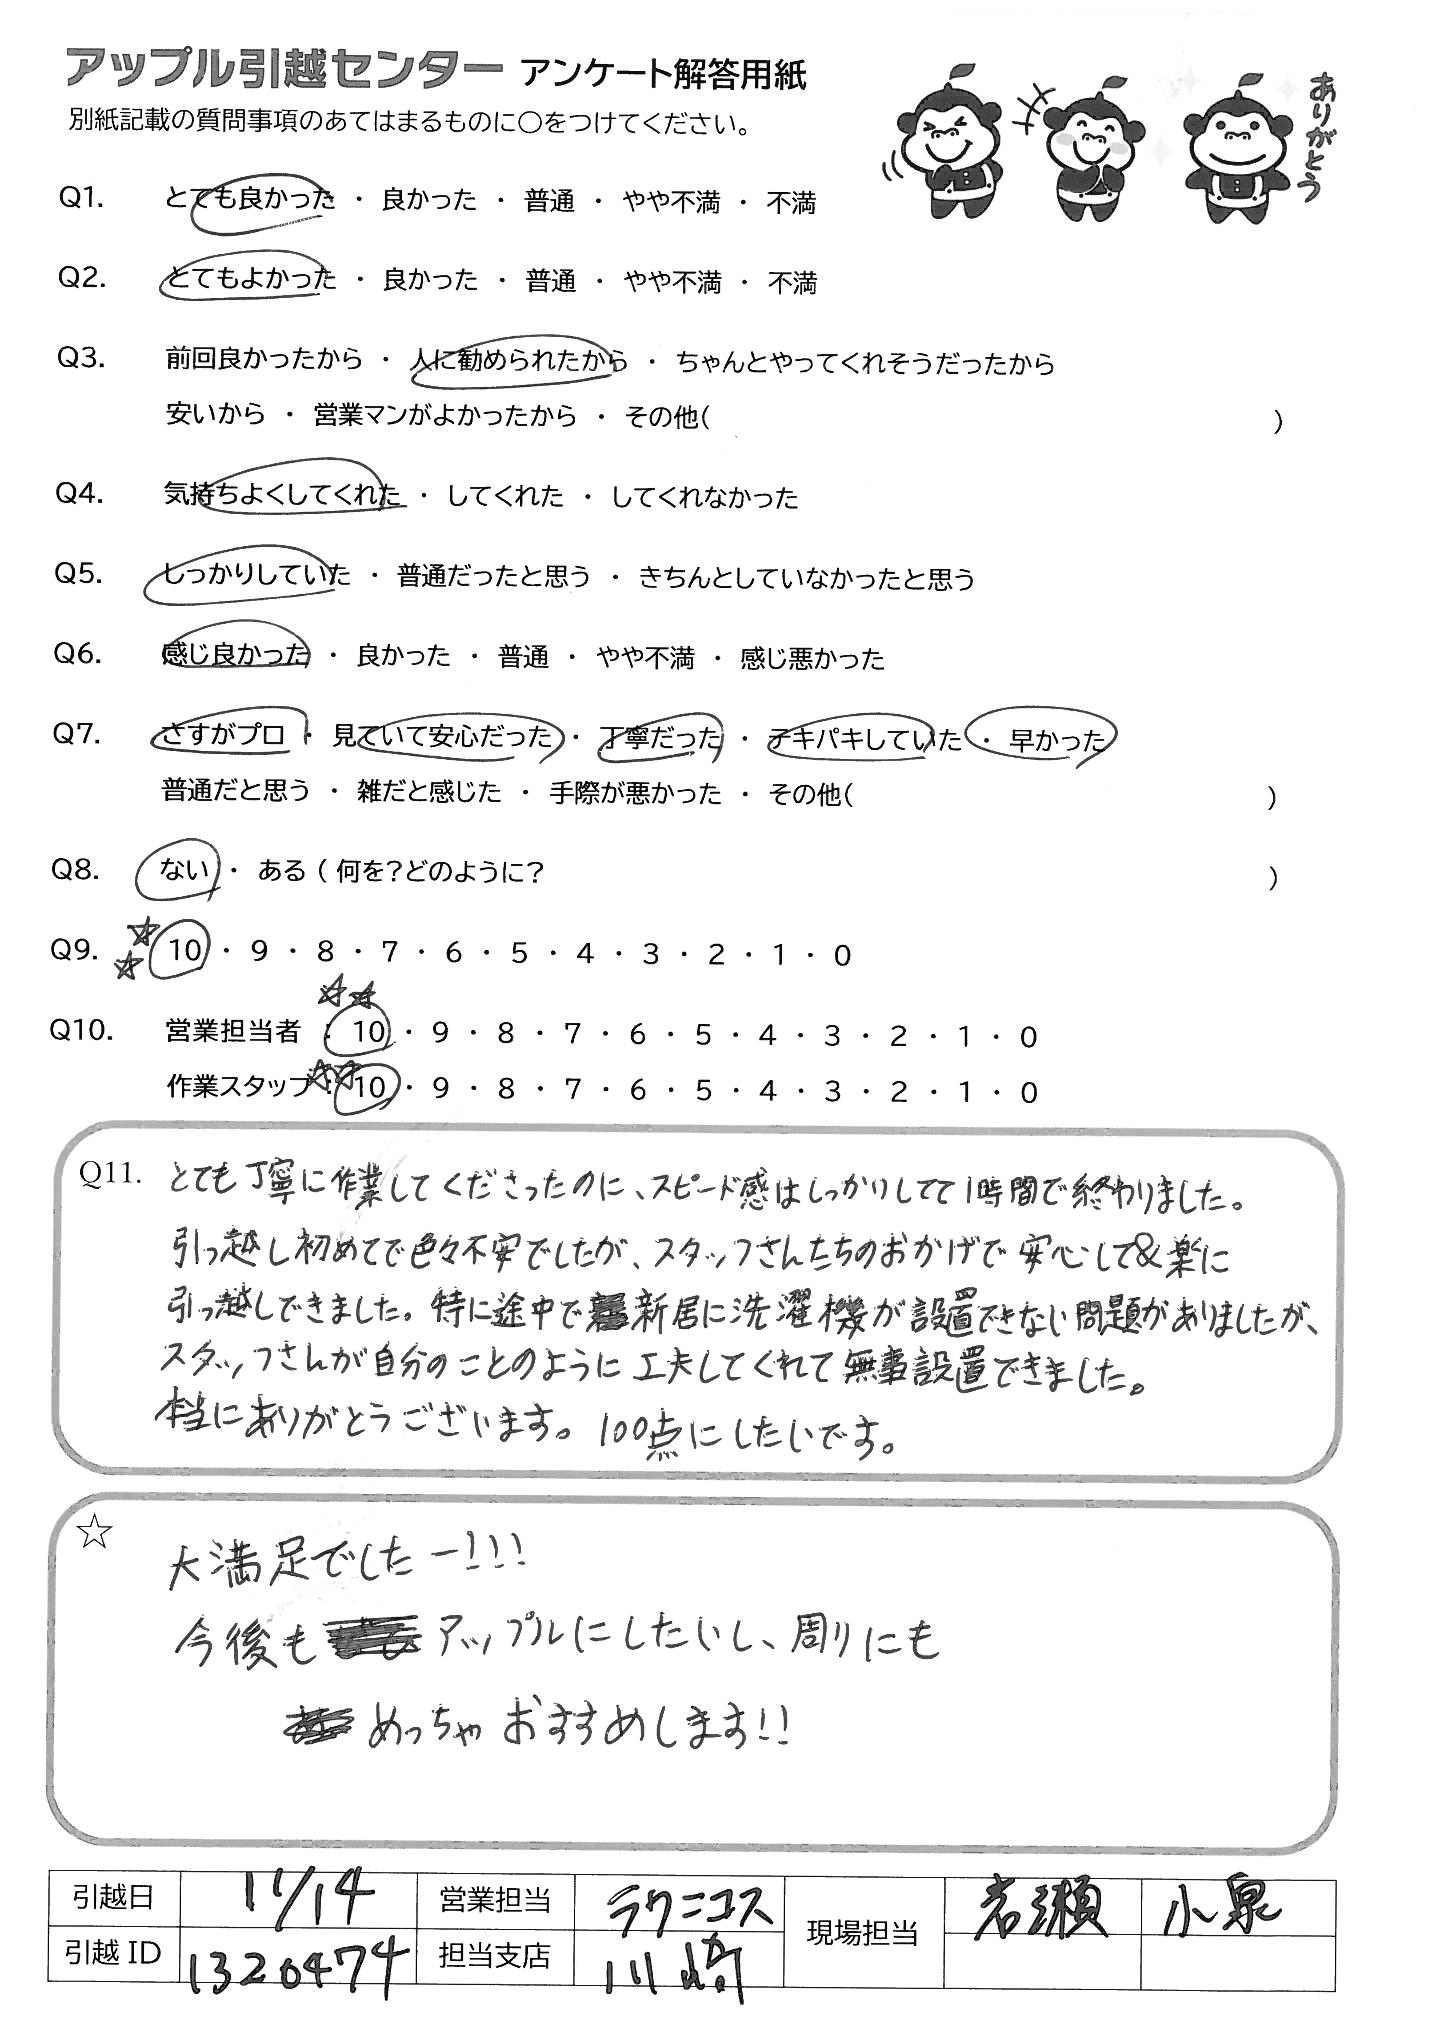 アップル引越センター アンケート解答用紙
別紙記載の質問事項のあてはまるものに○をつけてください。
ありがとう
Q1. とても良かった ・ 良かった ・ 普通 ・ やや不満 ・ 不満
Q2. とてもよかった ・ 良かった ・ 普通 ・ やや不満 ・ 不満
Q3. 前回良かったから ・ 人に勧められたから ・ ちゃんとやってくれそうだったから
安いから ・ 営業マンがよかったから ・ その他( )
Q4. 気持ちよくしてくれた ・ してくれた ・ してくれなかった
Q5. しっかりしていた ・ 普通だったと思う ・ きちんとしていなかったと思う
Q6. 感じ良かった ・ 良かった ・ 普通 ・ やや不満 ・ 感じ悪かった
Q7. さすがプロ ・ 見ていて安心だった ・ 丁寧だった ・ テキパキしていた ・ 早かった
普通だと思う ・ 雑だと感じた ・ 手際が悪かった ・ その他( )
Q8. ない ・ ある ( 何を?どのように? )
Q9. ☆☆ 10 ・ 9 ・ 8 ・ 7 ・ 6 ・ 5 ・ 4 ・ 3 ・ 2 ・ 1 ・ 0
☆☆
Q10. 営業担当者 : 10 ・ 9 ・ 8 ・ 7 ・ 6 ・ 5 ・ 4 ・ 3 ・ 2 ・ 1 ・ 0
☆☆
作業スタッフ : 10 ・ 9 ・ 8 ・ 7 ・ 6 ・ 5 ・ 4 ・ 3 ・ 2 ・ 1 ・ 0
Q11. とても丁寧に作業してくださったのに、スピード感はしっかりしてて1時間で終わりました。
引っ越し初めてで色々不安でしたが、スタッフさんたちのおかげで安心して&楽に
引っ越しできました。特に途中で新居に洗濯機が設置できない問題がありましたが、
スタッフさんが自分のことのように工夫してくれて無事設置できました。
本当にありがとうございます。100点にしたいです。
☆
大満足でしたー!!!
今後もアップルにしたいし、周りにも
めっちゃおすすめします!!
引越日 11/14 営業担当 ラクニコス 現場担当 岩瀬 小泉
引越ID 1320474 担当支店 川崎